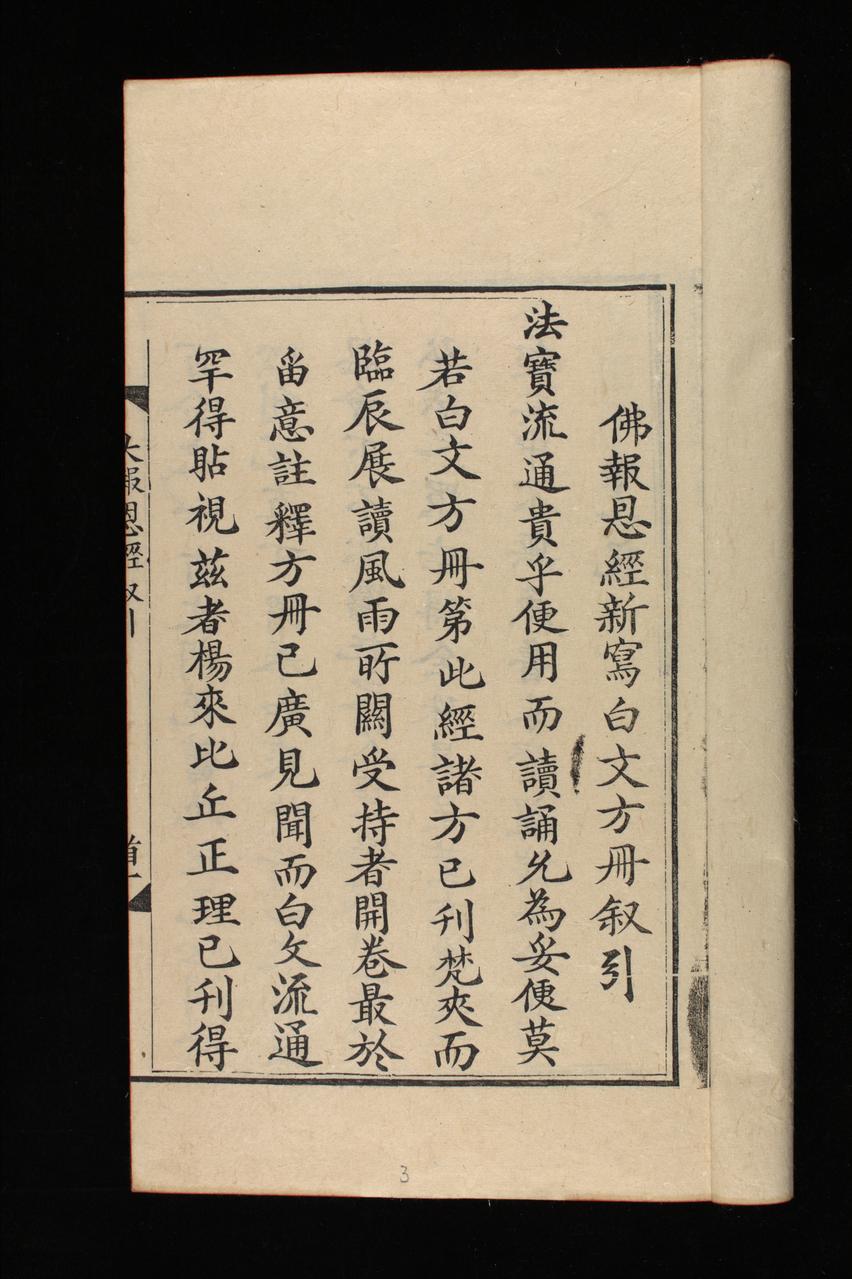 佛報恩經新寫白文方冊叙引
法寶流通貴乎便用而讀誦尤為妥便莫
若白文方冊第此經諸方已刊梵夾而
臨辰展讀風雨所關受持者開卷最於
畱意註釋方冊已廣見聞而白文流通
罕得貼視茲者楊來比丘正理已刊得
大報恩經叙引
3